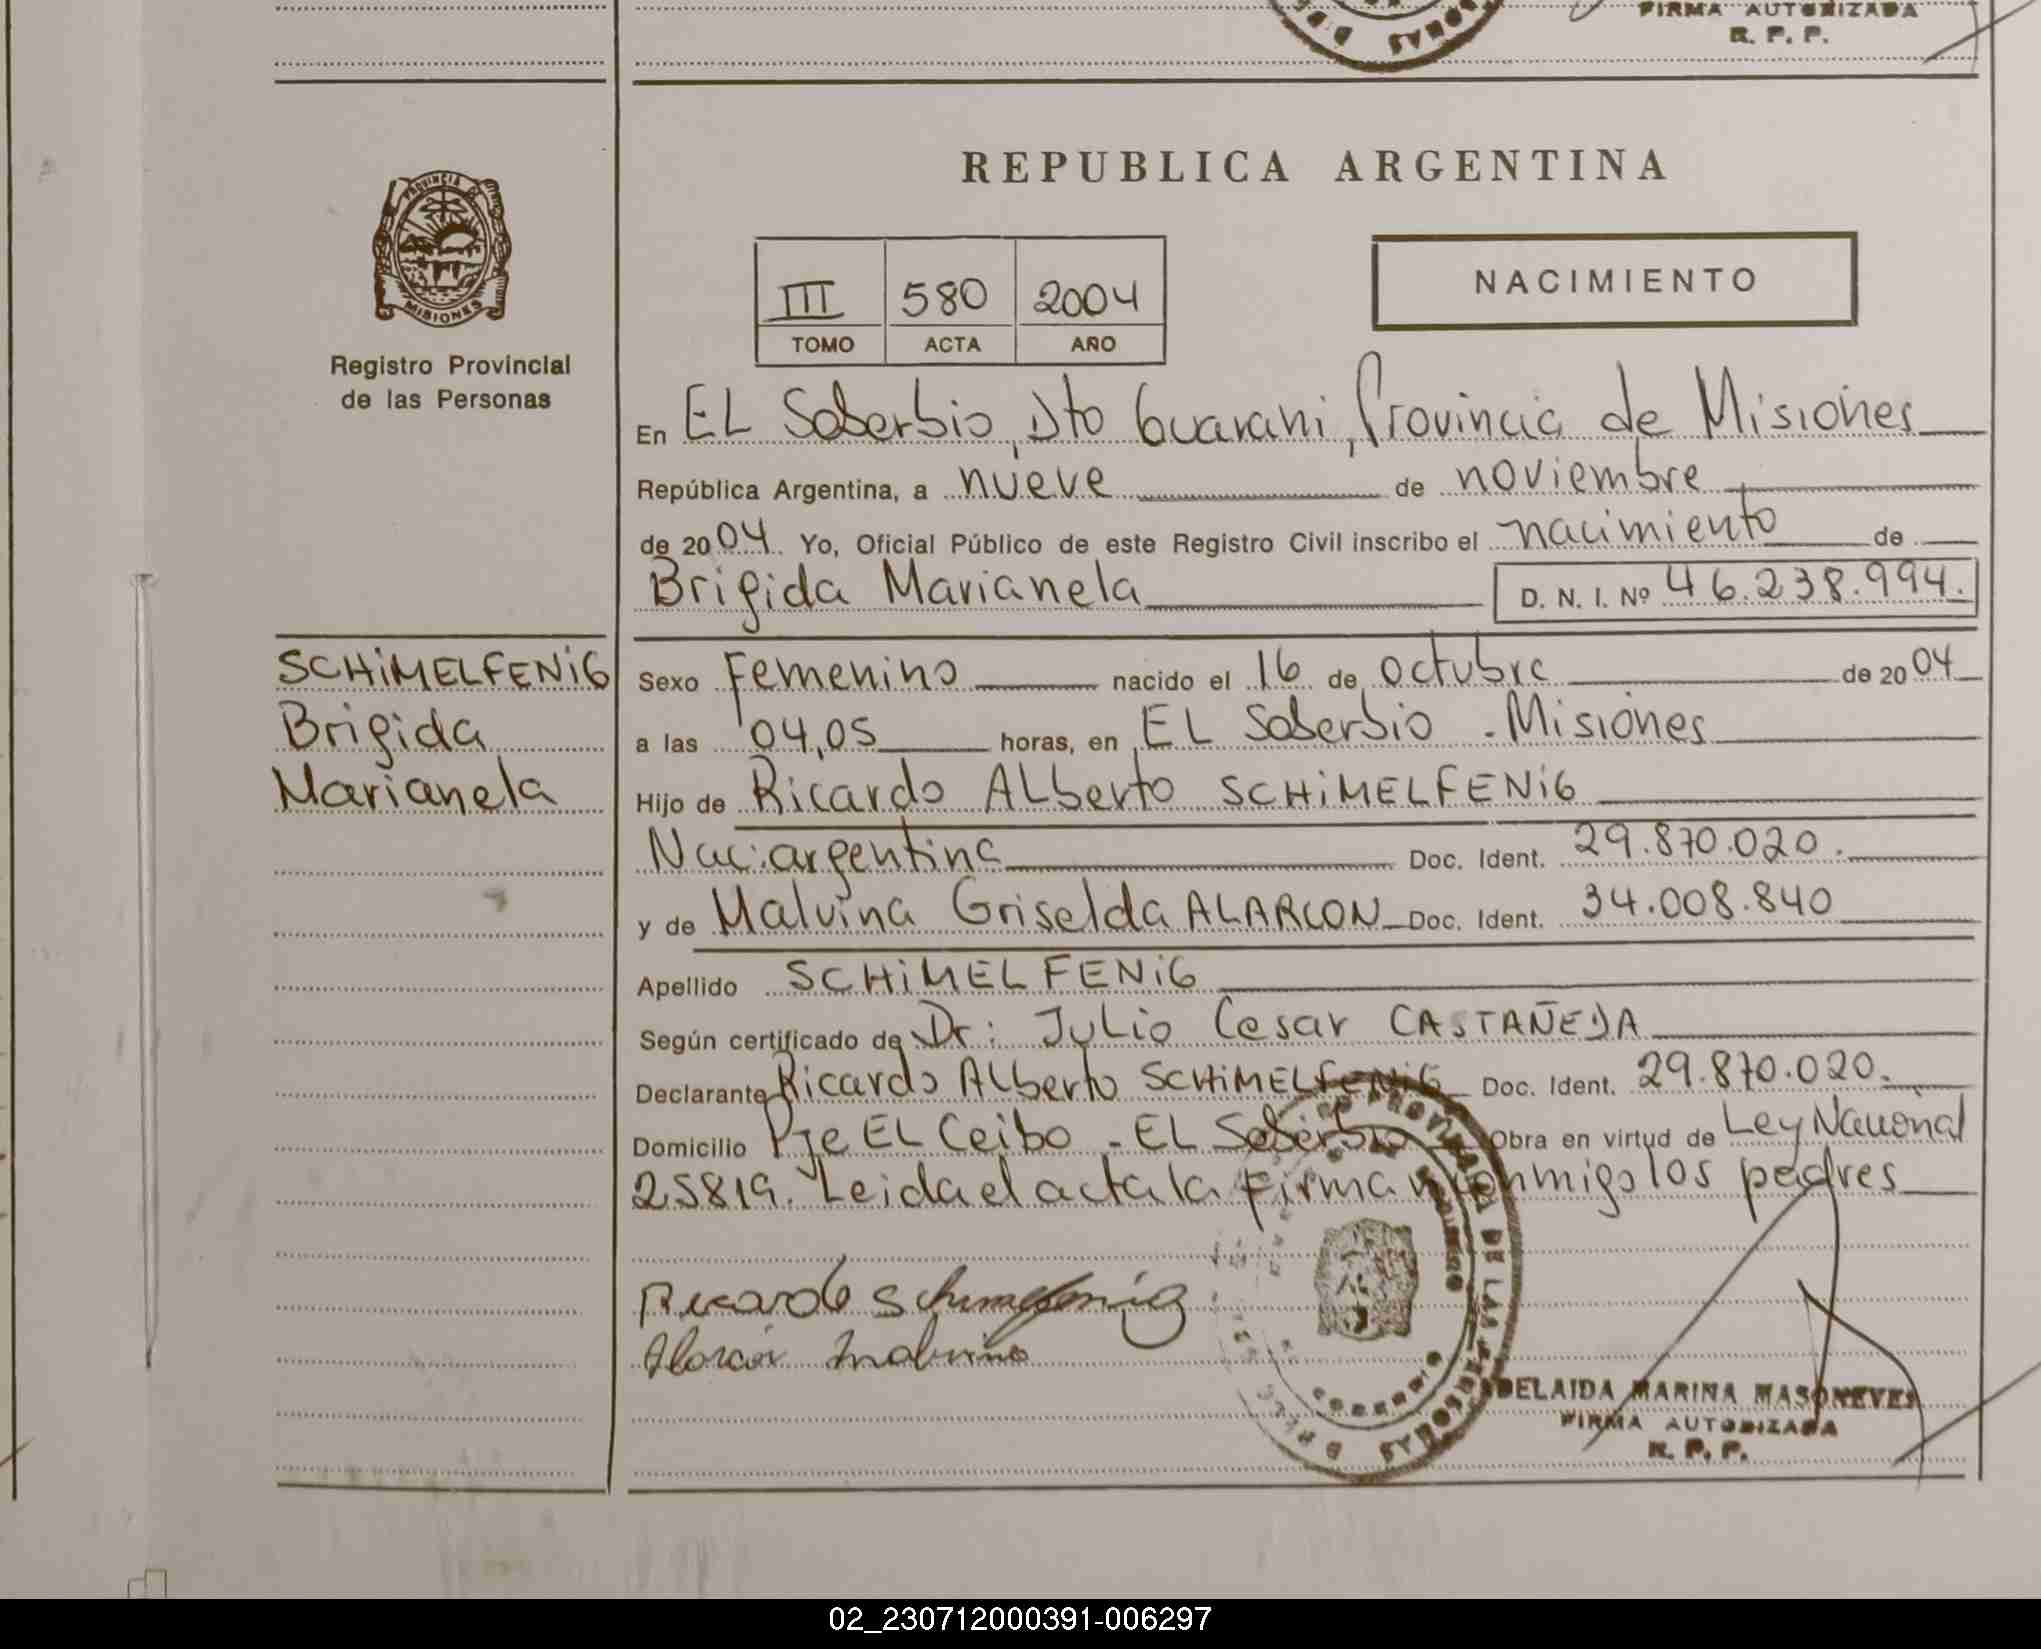 FIRMA AUTORIZADA
R. P. P.
PROVINCIA DE
MISIONES
Registro Provincial
de las Personas
REPUBLICA ARGENTINA
NACIMIENTO
III 580 2004
TOMO ACTA AÑO
En EL Soberbio, Dto Guarani, Provincia de Misiones
República Argentina, a nueve de noviembre
de 2004. Yo, Oficial Público de este Registro Civil inscribo el nacimiento de
Brigida Marianela D. N. I. Nº 46.238.994.
SCHiMELFENiG
Brigida
Marianela
Sexo Femenino nacido el 16 de octubre de 2004
a las 04,05 horas, en EL Soberbio - Misiones
Hijo de Ricardo ALberto SCHiMELFENiG
Nac: argentina Doc. Ident. 29.870.020.
y de Malvina Griselda ALARCON Doc. Ident. 34.008.840
Apellido SCHiMELFENiG
Según certificado de Dr: Julio Cesar CASTAÑEDA
Declarante Ricardo ALberto SCHiMELFENiG Doc. Ident. 29.870.020.
Domicilio Pje EL Ceibo - EL Soberbio Obra en virtud de Ley Nacional
25819. Leida el acta la firman conmigo los padres
Ricardo Schimelfenig
Alarcón Malvina
ADELAIDA MARINA MASONEVES
FIRMA AUTORIZADA
R. P. P.
02_230712000391-006297